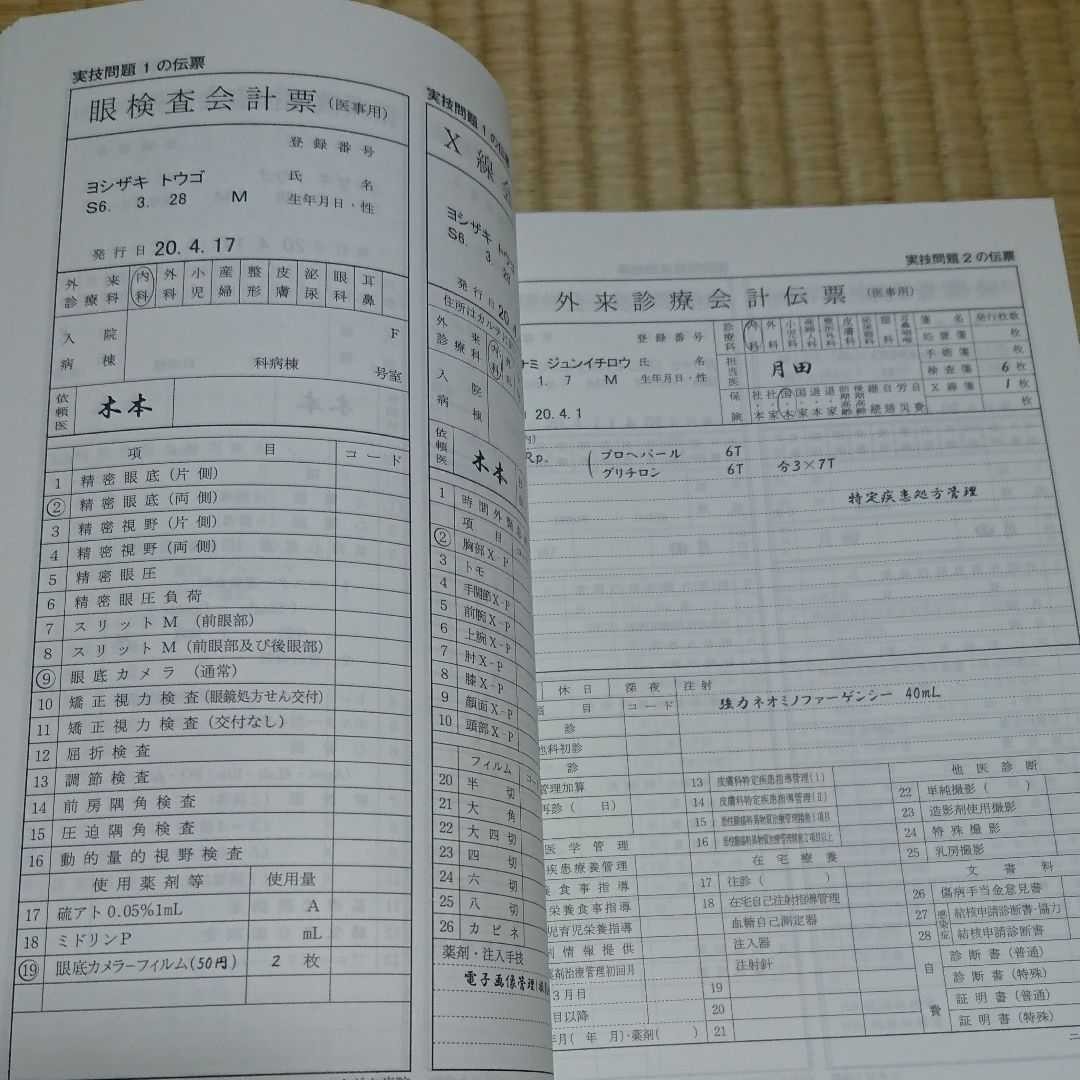 実技問題1の伝票
眼検査会計票(医事用)
登録番号
ヨシザキ トウゴ 氏名
S6. 3. 28 M 生年月日・性
発行日 20.4.17
外来診療科 内科 外科 小児 産婦 整形 皮膚 泌尿 眼科 耳鼻
入院病棟 F
科病棟 号室
依頼医 木本
項目 コード
1 精密眼底(片側)
② 精密眼底(両側)
3 精密視野(片側)
4 精密視野(両側)
5 精密眼圧
6 精密眼圧負荷
7 スリットM(前眼部)
8 スリットM(前眼部及び後眼部)
⑨ 眼底カメラ(通常)
10 矯正視力検査(眼鏡処方せん交付)
11 矯正視力検査(交付なし)
12 屈折検査
13 調節検査
14 前房隅角検査
15 圧迫隅角検査
16 動的量的視野検査
使用薬剤等 使用量
17 硫アト0.05%1mL A
18 ミドリンP mL
⑲ 眼底カメラーフィルム(50円) 2 枚
実技問題1の伝票
X線
ヨシザキ トウゴ
S6. 3. 28
発行日 20.4
住所はカルテ
外来診療科 内科
入院病棟
依頼医 木本
1 時間外
項目
② 胸部X-P
3 トモ
4 手関節X-P
5 前腕X-P
6 上腕X-P
7 肘X-P
8 膝X-P
9 顔面X-P
10 頭部X-P
フィルム
20 半切
21 大角
22 大四切
23 四切
24 六切
25 八切
26 カビネ
薬剤・注入手技
電子画像管理
実技問題2の伝票
外来診療会計伝票(医事用)
登録番号
ナミ ジュンイチロウ 氏名
1. 7 M 生年月日・性
20.4.1
診療科 内科 外科
担当医 月田
保険
箋名 発行枚数
処置箋 枚
手術箋 枚
検査箋 6枚
X線箋 1枚
枚
Rp. プロヘパール 6T
グリチロン 6T 分3×7T
特定疾患処方管理
休日 深夜 注射
項目 コード
強力ネオミノファーゲンシー 40mL
診
他科初診
診
管理加算
再診(日)
医学管理
疾患療養管理
食事指導
栄養食事指導
児育児栄養指導
剤情報提供
薬剤治療管理初回月
3月目
月以降
年月(年 月)・薬剤( )
13 皮膚科特定疾患指導管理(Ⅰ)
14 皮膚科特定疾患指導管理(Ⅱ)
15 悪性腫瘍特異物質治療管理精検1項目
16 悪性腫瘍特異物質治療管理精検2項目以上
在宅療養
17 往診( )
18 在宅自己注射指導管理
血糖自己測定器
注入器
注射針
19
20
21
他医診断
22 単純撮影( )
23 造影剤使用撮影
24 特殊撮影
25 乳房撮影
文書料
26 傷病手当金意見書
27 感染症 結核申請診断書・協力
28 結核申請診断書
自費
診断書(普通)
診断書(特殊)
証明書(普通)
証明書(特殊)